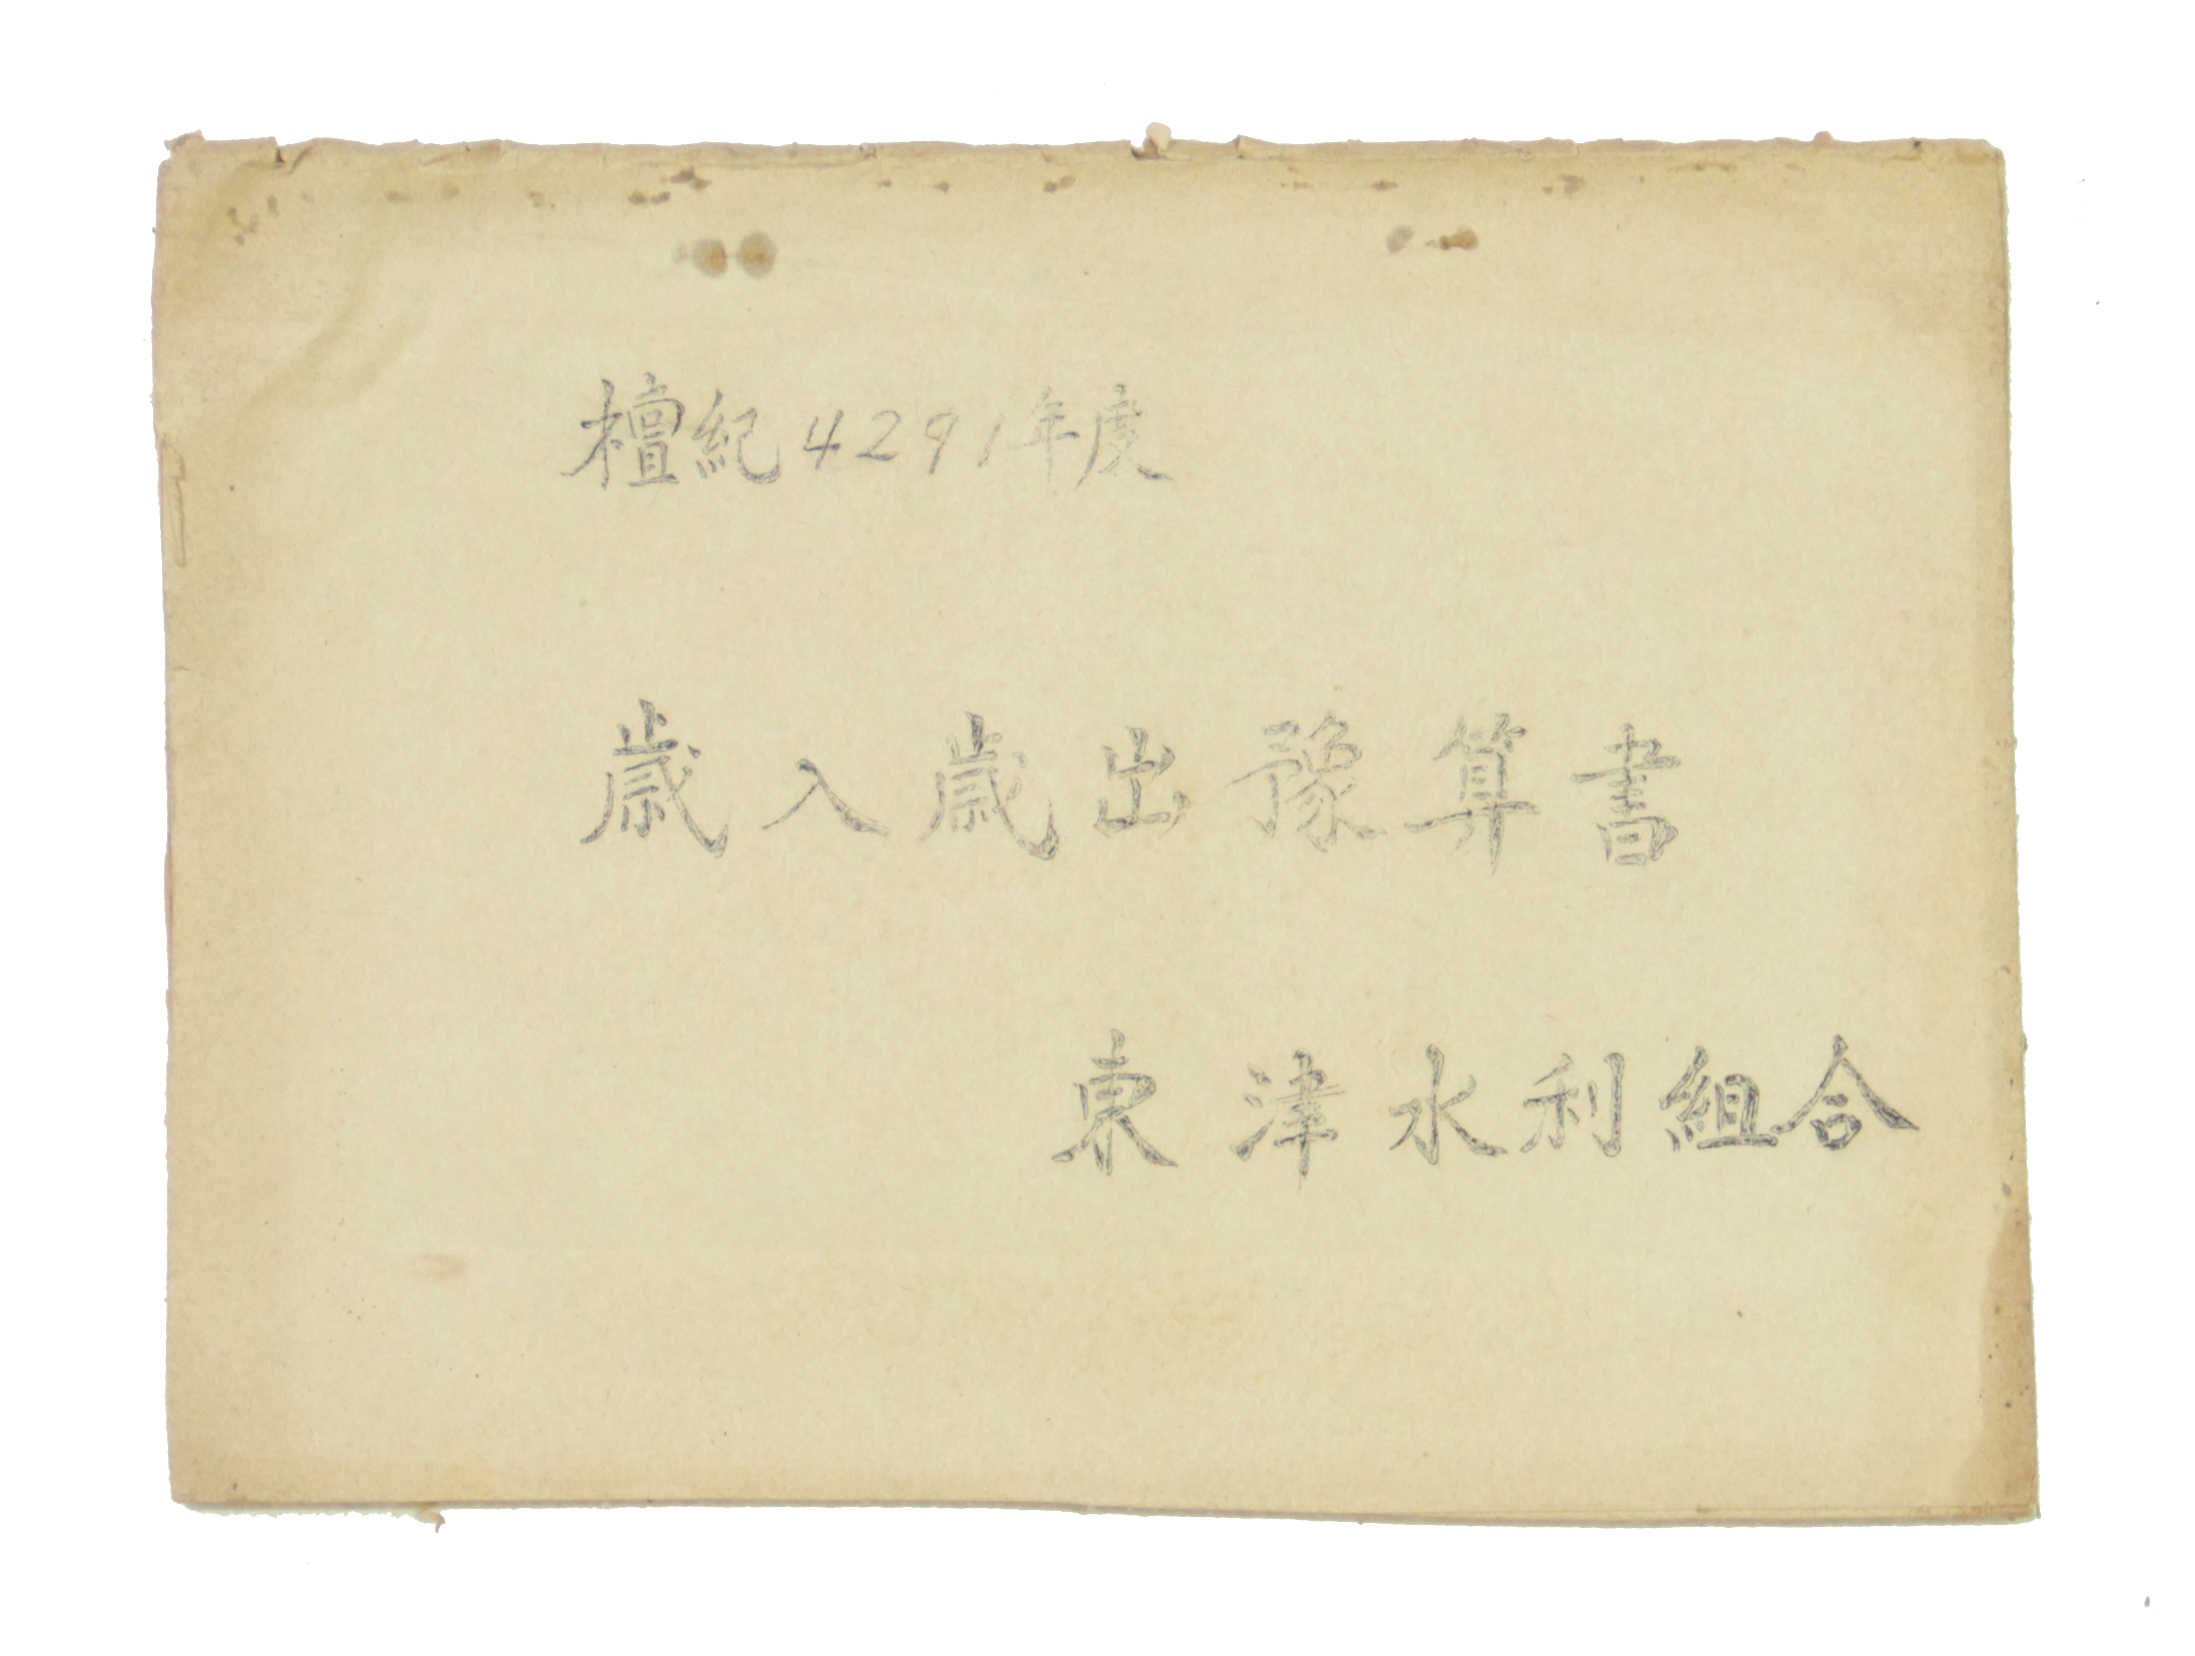 檀紀4291年度
歲入歲出豫算書
東津水利組合